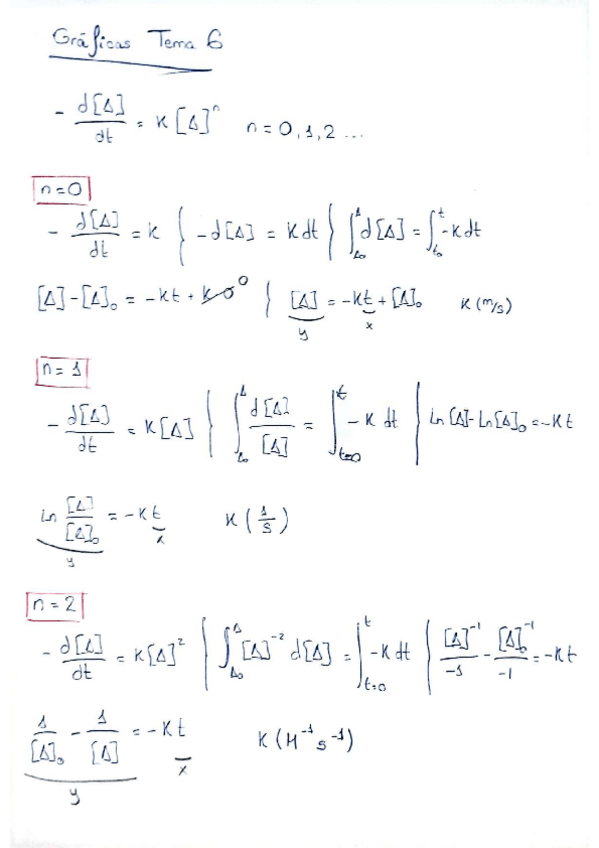 Gráficas Tema 6
- d[A]/dt = K[A]^n   n = 0, 1, 2 ...
n=0
- d[A]/dt = K { -d[A] = K dt } ∫_{A₀}^{A} d[A] = ∫_{t₀}^{t} -K dt
[A]-[A]₀ = -Kt + K·0⁰ { [A] = -Kt + [A]₀   K (m/s)
y   x
n=1
- d[A]/dt = K[A] } ∫_{A₀}^{A} d[A]/[A] = ∫_{t=0}^{t} -K dt } Ln[A]-Ln[A]₀ = -Kt
Ln [A]/[A]₀ = -Kt   K (1/s)
y   x
n=2
- d[A]/dt = K[A]² { ∫_{A₀}^{A} [A]^-2 d[A] = ∫_{t=0}^{t} -K dt { [A]^-1/-1 - [A]₀^-1/-1 = -Kt
1/[A]₀ - 1/[A] = -Kt   K (M^-1 s^-1)
y   x